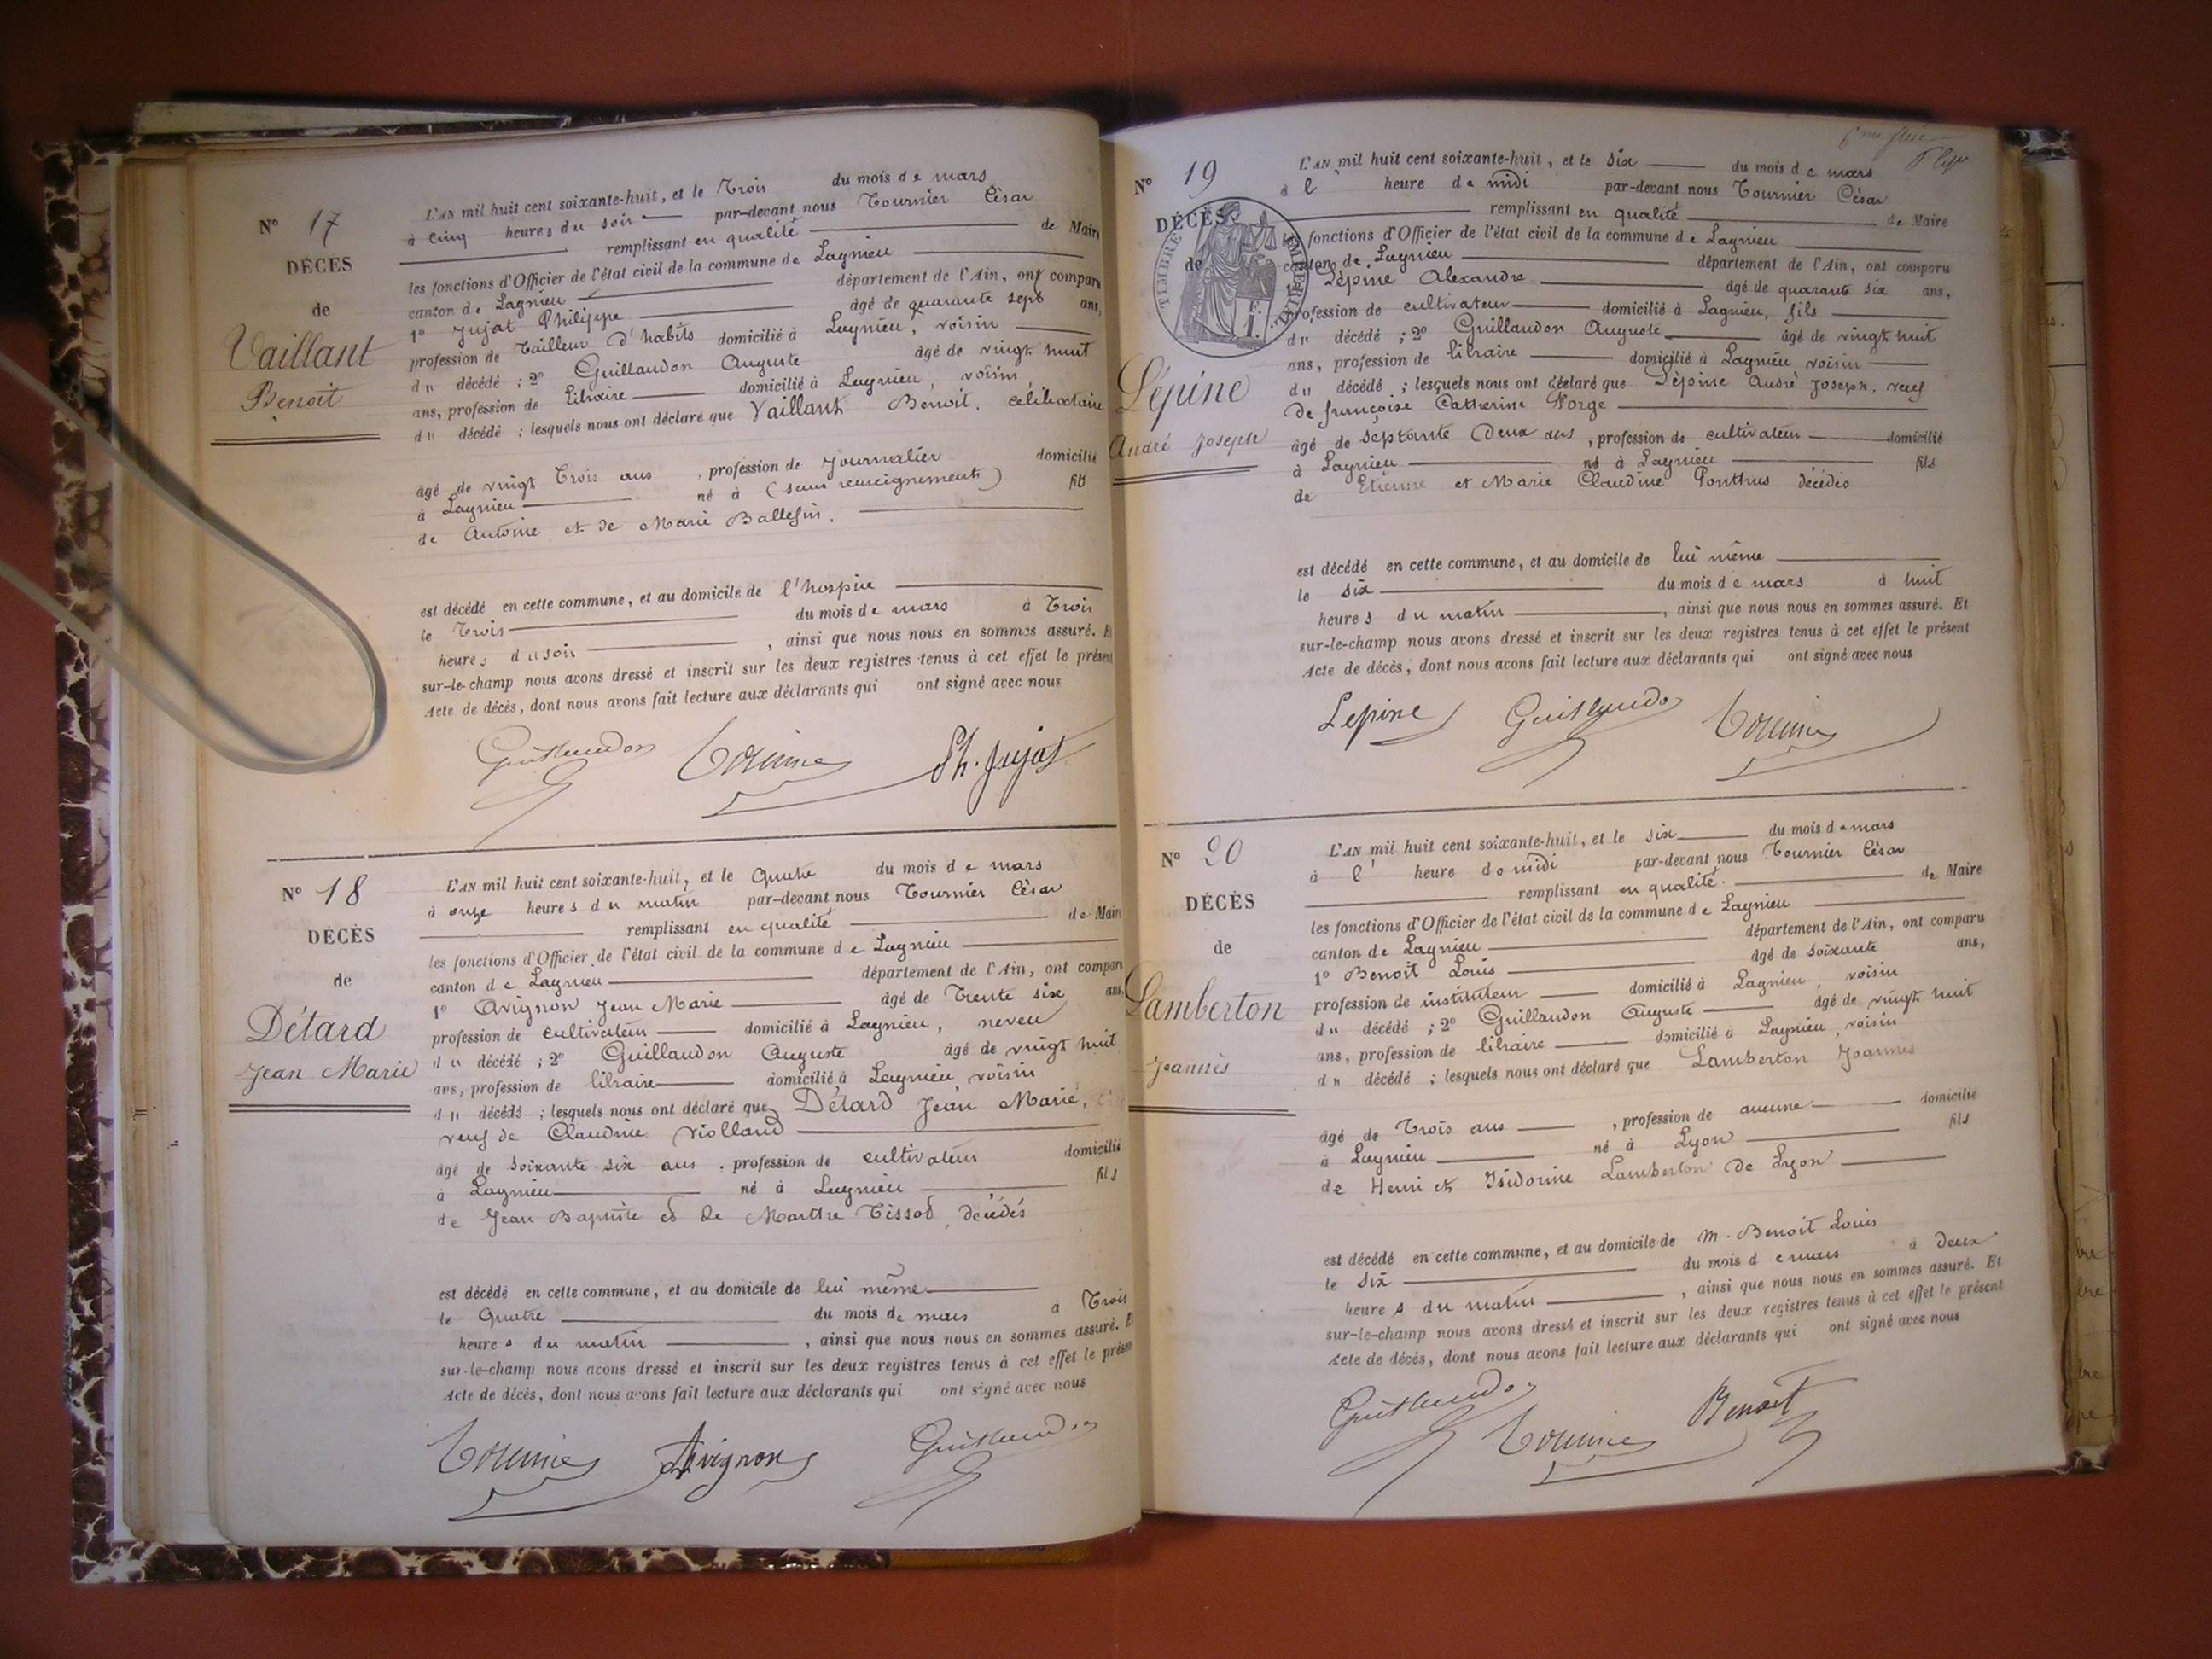 N° 17
DÉCÈS
de
Vaillant
Benoit
L'AN mil huit cent soixante-huit, et le Trois du mois de mars
à cinq heures du soir par-devant nous Tournier César
remplissant en qualité de Maire
les fonctions d'Officier de l'état civil de la commune de Lagnieu
canton de Lagnieu département de l'Ain, ont comparu
1° Jujat Philippe âgé de quarante sept ans,
profession de Tailleur d'habits domicilié à Lagnieu, voisin
du décédé ; 2° Guillaudon Auguste âgé de vingt huit
ans, profession de Libraire domicilié à Lagnieu, voisin
du décédé ; lesquels nous ont déclaré que Vaillant Benoit, célibataire
âgé de vingt Trois ans, profession de Journalier domicilié
à Lagnieu né à (sans renseignements) fils
de Antoine et de Marie
est décédé en cette commune, et au domicile de l'hospice
le Trois du mois de mars à Trois
heures du soir, ainsi que nous nous en sommes assuré. Et
sur-le-champ nous avons dressé et inscrit sur les deux registres tenus à cet effet le présent
Acte de décès, dont nous avons fait lecture aux déclarants qui ont signé avec nous
Guillaudon Tournier Ph. Jujat
N° 18
DÉCÈS
de
Détard
Jean Marie
L'AN mil huit cent soixante-huit, et le Quatre du mois de mars
à onze heures du matin par-devant nous Tournier César
remplissant en qualité de Maire
les fonctions d'Officier de l'état civil de la commune de Lagnieu
canton de Lagnieu département de l'Ain, ont comparu
1° Avignon Jean Marie âgé de Trente six ans,
profession de cultivateur domicilié à Lagnieu, neveu
du décédé ; 2° Guillaudon Auguste âgé de vingt huit
ans, profession de libraire domicilié à Lagnieu, voisin
du décédé ; lesquels nous ont déclaré que Détard Jean Marie,
veuf de Claudine Violland
âgé de soixante-six ans, profession de cultivateur domicilié
à Lagnieu né à Lagnieu fils
de Jean Baptiste et de Marthe Tissot, décédés
est décédé en cette commune, et au domicile de lui même
le Quatre du mois de mars à Trois
heures du matin, ainsi que nous nous en sommes assuré. Et
sur-le-champ nous avons dressé et inscrit sur les deux registres tenus à cet effet le présent
Acte de décès, dont nous avons fait lecture aux déclarants qui ont signé avec nous
Tournier Avignon Guillaudon
N° 19
DÉCÈS
de
TIMBRE IMPÉRIAL
F.
1.
Lépine
André Joseph
L'AN mil huit cent soixante-huit, et le six du mois de mars
à l' heure de midi par-devant nous Tournier César
remplissant en qualité de Maire
fonctions d'Officier de l'état civil de la commune de Lagnieu
canton de Lagnieu département de l'Ain, ont comparu
1° Lépine Alexandre âgé de quarante six ans,
profession de cultivateur domicilié à Lagnieu, fils
du décédé ; 2° Guillaudon Auguste âgé de vingt huit
ans, profession de libraire domicilié à Lagnieu voisin
du décédé ; lesquels nous ont déclaré que Lépine André Joseph, veuf
de françoise Catherine Norge
âgé de septante Deux ans, profession de cultivateur domicilié
à Lagnieu né à Lagnieu fils
de Etienne et Marie Claudine Ponthus décédés
est décédé en cette commune, et au domicile de lui même
le six du mois de mars à huit
heures du matin, ainsi que nous nous en sommes assuré. Et
sur-le-champ nous avons dressé et inscrit sur les deux registres tenus à cet effet le présent
Acte de décès, dont nous avons fait lecture aux déclarants qui ont signé avec nous
Lepine Guillaudon Tournier
N° 20
DÉCÈS
de
Lamberton
Joannès
L'AN mil huit cent soixante-huit, et le six du mois de mars
à l' heure de midi par-devant nous Tournier César
remplissant en qualité de Maire
les fonctions d'Officier de l'état civil de la commune de Lagnieu
canton de Lagnieu département de l'Ain, ont comparu
1° Benoit Louis âgé de soixante ans,
profession de instituteur domicilié à Lagnieu, voisin
du décédé ; 2° Guillaudon Auguste âgé de vingt huit
ans, profession de libraire domicilié à Lagnieu, voisin
du décédé ; lesquels nous ont déclaré que Lamberton Joannès
âgé de Trois ans, profession de aucune domicilié
à Lagnieu né à Lyon fils
de Henri et Isidorine Lamberton de Lyon
est décédé en cette commune, et au domicile de M. Benoit Louis
le six du mois de mars à Deux
heures du matin, ainsi que nous nous en sommes assuré. Et
sur-le-champ nous avons dressé et inscrit sur les deux registres tenus à cet effet le présent
Acte de décès, dont nous avons fait lecture aux déclarants qui ont signé avec nous
Guillaudon Tournier Benoit